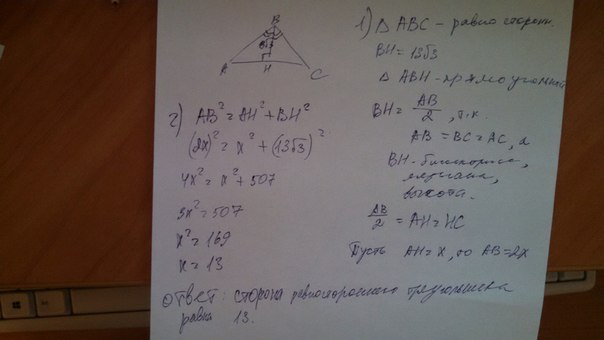 B
13√3
A H C
1) Δ ABC - равносторонн.
BH = 13√3
Δ ABH - прямоугольный
BH = AB/2, т.к.
AB = BC = AC, а
BH - биссектриса,
медиана,
высота.
AB/2 = AH = HC
Пусть AH = x, то AB = 2x
2) AB² = AH² + BH²
(2x)² = x² + (13√3)²
4x² = x² + 507
3x² = 507
x² = 169
x = 13
Ответ: сторона равностороннего треугольника
равна 13.